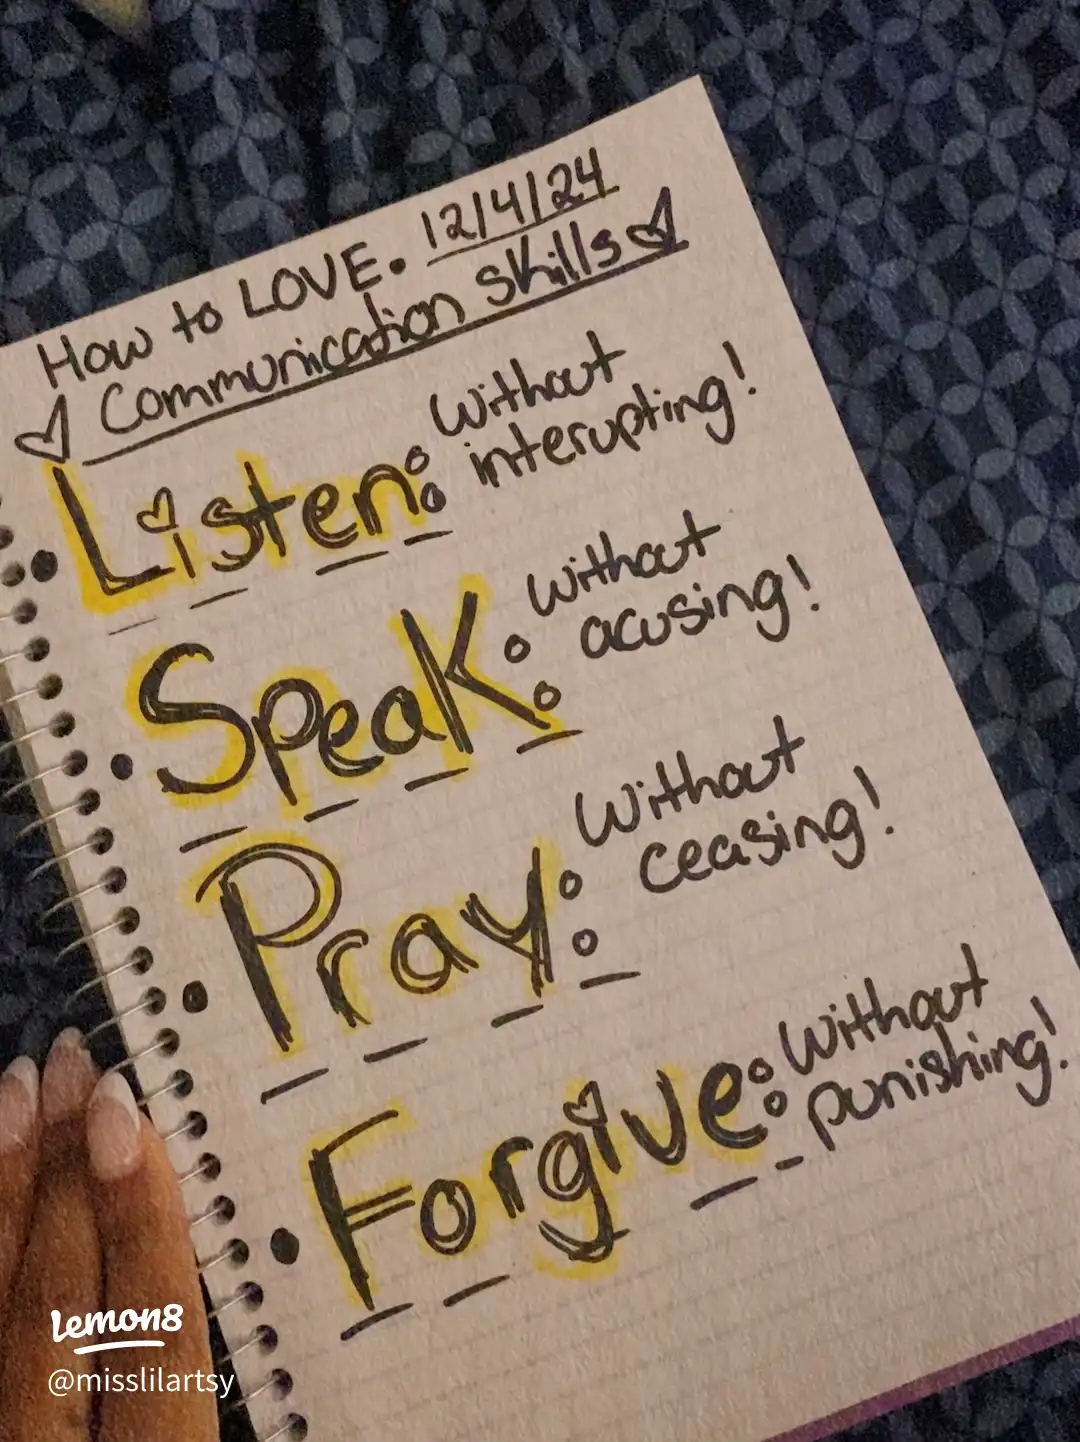 How to LOVE. 12/4/24
Communication skills
Listen: without
interupting!
Speak: without
acusing!
Pray: without
ceasing!
Forgive: without
punishing!
lemon8
@misslilartsy